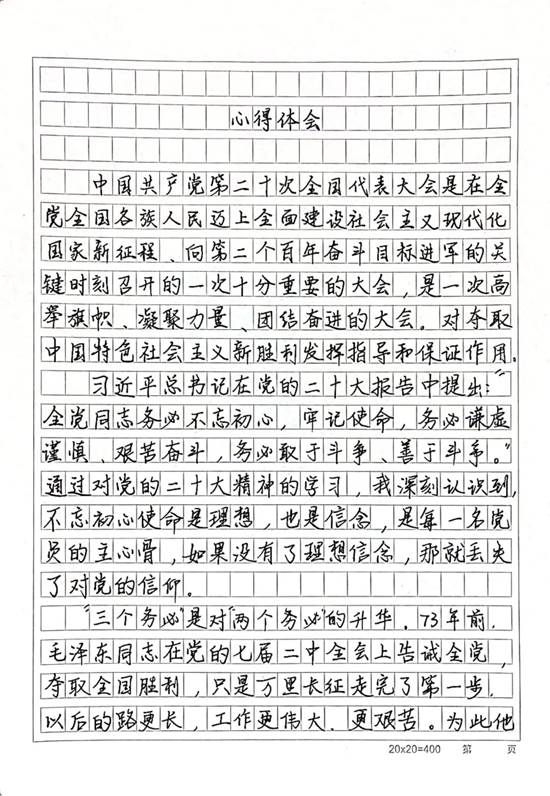 心得体会
中国共产党第二十次全国代表大会是在全
党全国各族人民迈上全面建设社会主义现代化
国家新征程、向第二个百年奋斗目标进军的关
键时刻召开的一次十分重要的大会，是一次高
举旗帜、凝聚力量、团结奋进的大会。对夺取
中国特色社会主义新胜利发挥指导和保证作用.
习近平总书记在党的二十大报告中提出："
全党同志务必不忘初心，牢记使命，务必谦虚
谨慎、艰苦奋斗，务必敢于斗争、善于斗争。"
通过对党的二十大精神的学习，我深刻认识到,
不忘初心使命是理想，也是信念，是每一名党
员的主心骨，如果没有了理想信念，那就丢失
了对党的信仰。
"三个务必"是对"两个务必"的升华．73年前．
毛泽东同志在党的七届二中全会上告诫全党，
夺取全国胜利，只是万里长征走完了第一步．
以后的路更长，工作更伟大．更艰苦。为此他
20x20=400 第 页